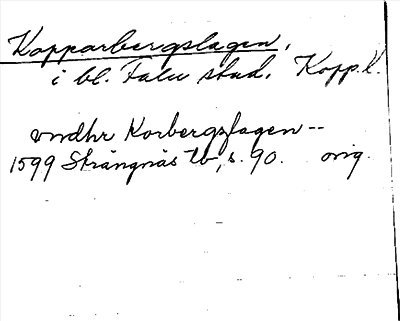 Kopparbergslagen,
i bl. Falu stad. Kopp.l.
vndhr Korbergzlagen --
1599 Strängnäs tb, s. 90. orig.